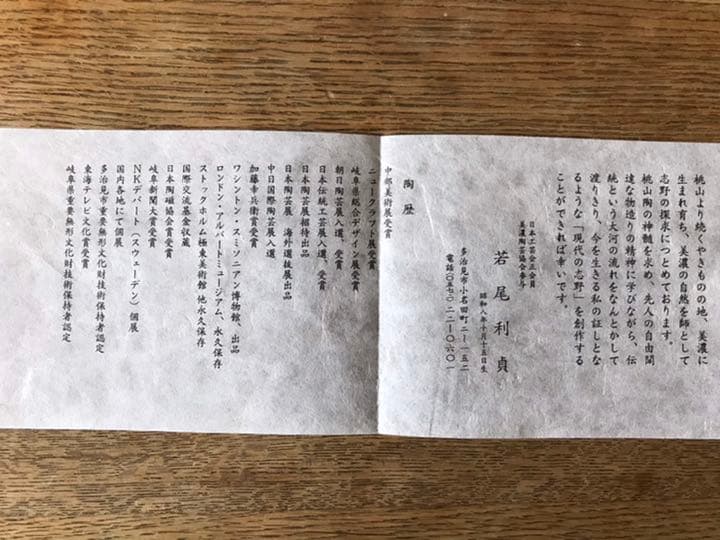 桃山より続くやきものの地、美濃に
生まれ育ち、美濃の自然を師として
志野の探求につとめております。
桃山陶の神髄を求め、先人の自由闊
達な物造りの精神に学びながら、伝
統という大河の流れをなんとかして
渡りきり、今を生きる私の証しとな
るような「現代の志野」を創作する
ことができれば幸いです。
日本工芸会正会員
美濃陶芸協会参与
若尾利貞
昭和八年十月十五日生
多治見市小名田町二ー一五二
電話(〇五七二)二二ー〇六〇一
陶歴
中部美術展受賞
ニュークラフト展受賞
岐阜県総合デザイン展受賞
朝日陶芸展入選、受賞
日本伝統工芸展入選、受賞
日本陶芸展招待出品
日本陶芸展 海外選抜展出品
中日国際陶芸展入選
加藤幸兵衛賞受賞
ワシントン・スミソニアン博物館、出品
ロンドン・アルバートミュージアム、永久保存
ストックホルム極東美術館 他永久保存
国際交流基金収蔵
日本陶磁協会賞受賞
岐阜新聞大賞受賞
NKデパート(スウェーデン)個展
国内各地にて個展
多治見市重要無形文化財技術保持者認定
東海テレビ文化賞受賞
岐阜県重要無形文化財技術保持者認定